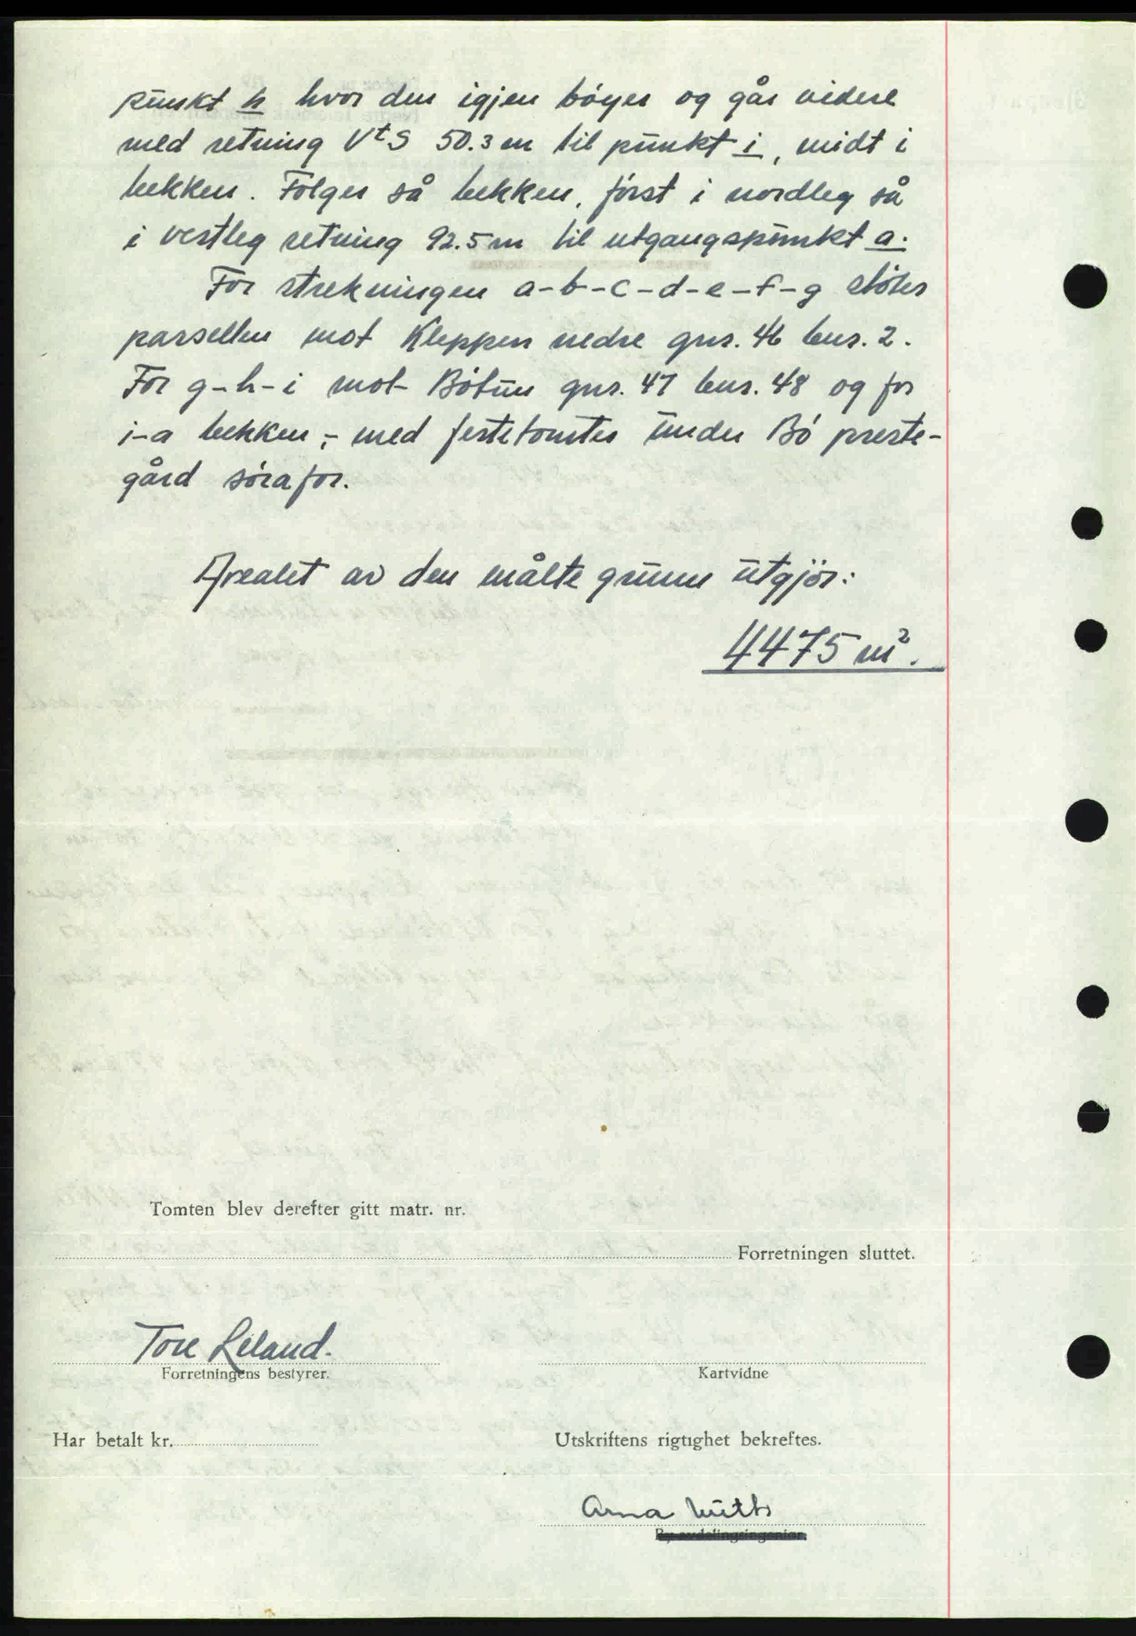 punkt h hvor den igjen bøyer og går videre
med retning VtS 50.3 m til punkt i, midt i
bekken. Følger så bekken, først i nordleg så
i vestleg retning 92.5 m til utgangspunkt a.
For strekningen a-b-c-d-e-f-g støter
parsellen mot Kleppen nedre gnr. 46 bnr. 2.
For g-h-i mot Bøtun gnr. 47 bnr. 48 og for
i-a bekken, - med festetomter under Bø preste-
gård sørafor.
Arealet av den målte grunn utgjör:
4475 m².
Tomten blev derefter gitt matr. nr.
Forretningen sluttet.
Tore Leland.
Forretningens bestyrer.
Kartvidne
Har betalt kr.
Utskriftens rigtighet bekreftes.
Arna
By-avdelingsingeniør.